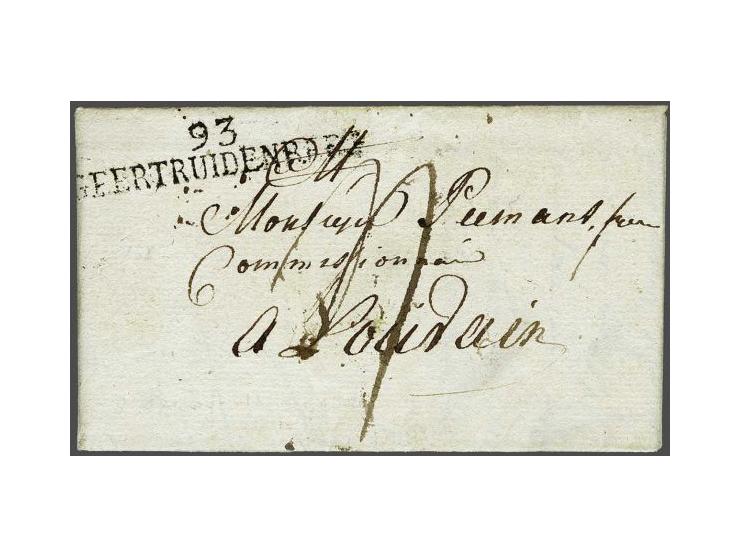 93
GEERTRUIDENBERG
M
Monsieur Piemans, frere
Commissionnaire
a Louvain